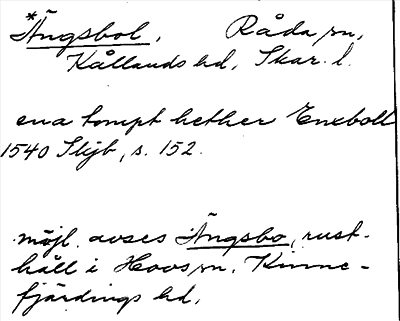 *Ängsbol, Råda sn,
Kållands hd, Skar. l.
ena tompt hether Eneboll
1540 Skjb, s. 152.
möjl. avses Ängsbo, rust-
håll i Hovs sn, Kinne-
fjärdings hd,